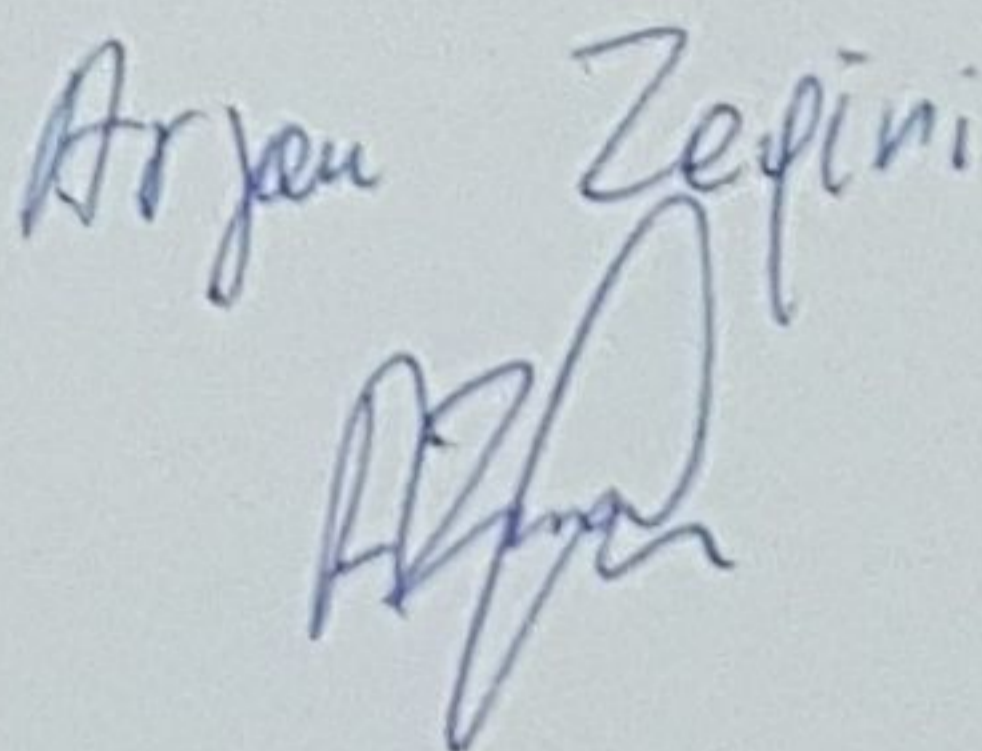 Arjan Zeqiri